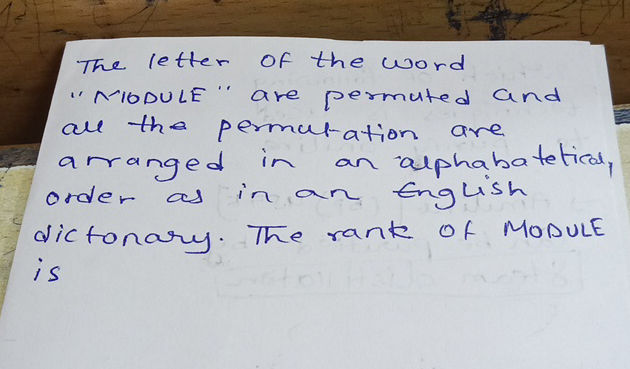 The letter of the word
"MODULE" are permuted and
all the permutation are
arranged in an alphabatetical,
order as in an English
dictonary. The rank of MODULE
is